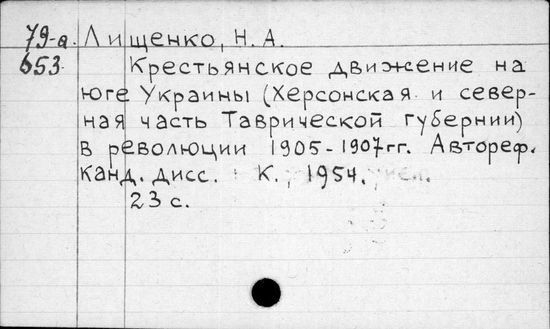 79-а. Лищенко, Н. А.
653 Крестьянское движение на
юге Украины (Херсонская и север-
ная часть Таврической губернии)
в революции 1905-1907гг. Автореф.
канд. дисс. К., 1954.
23 с.